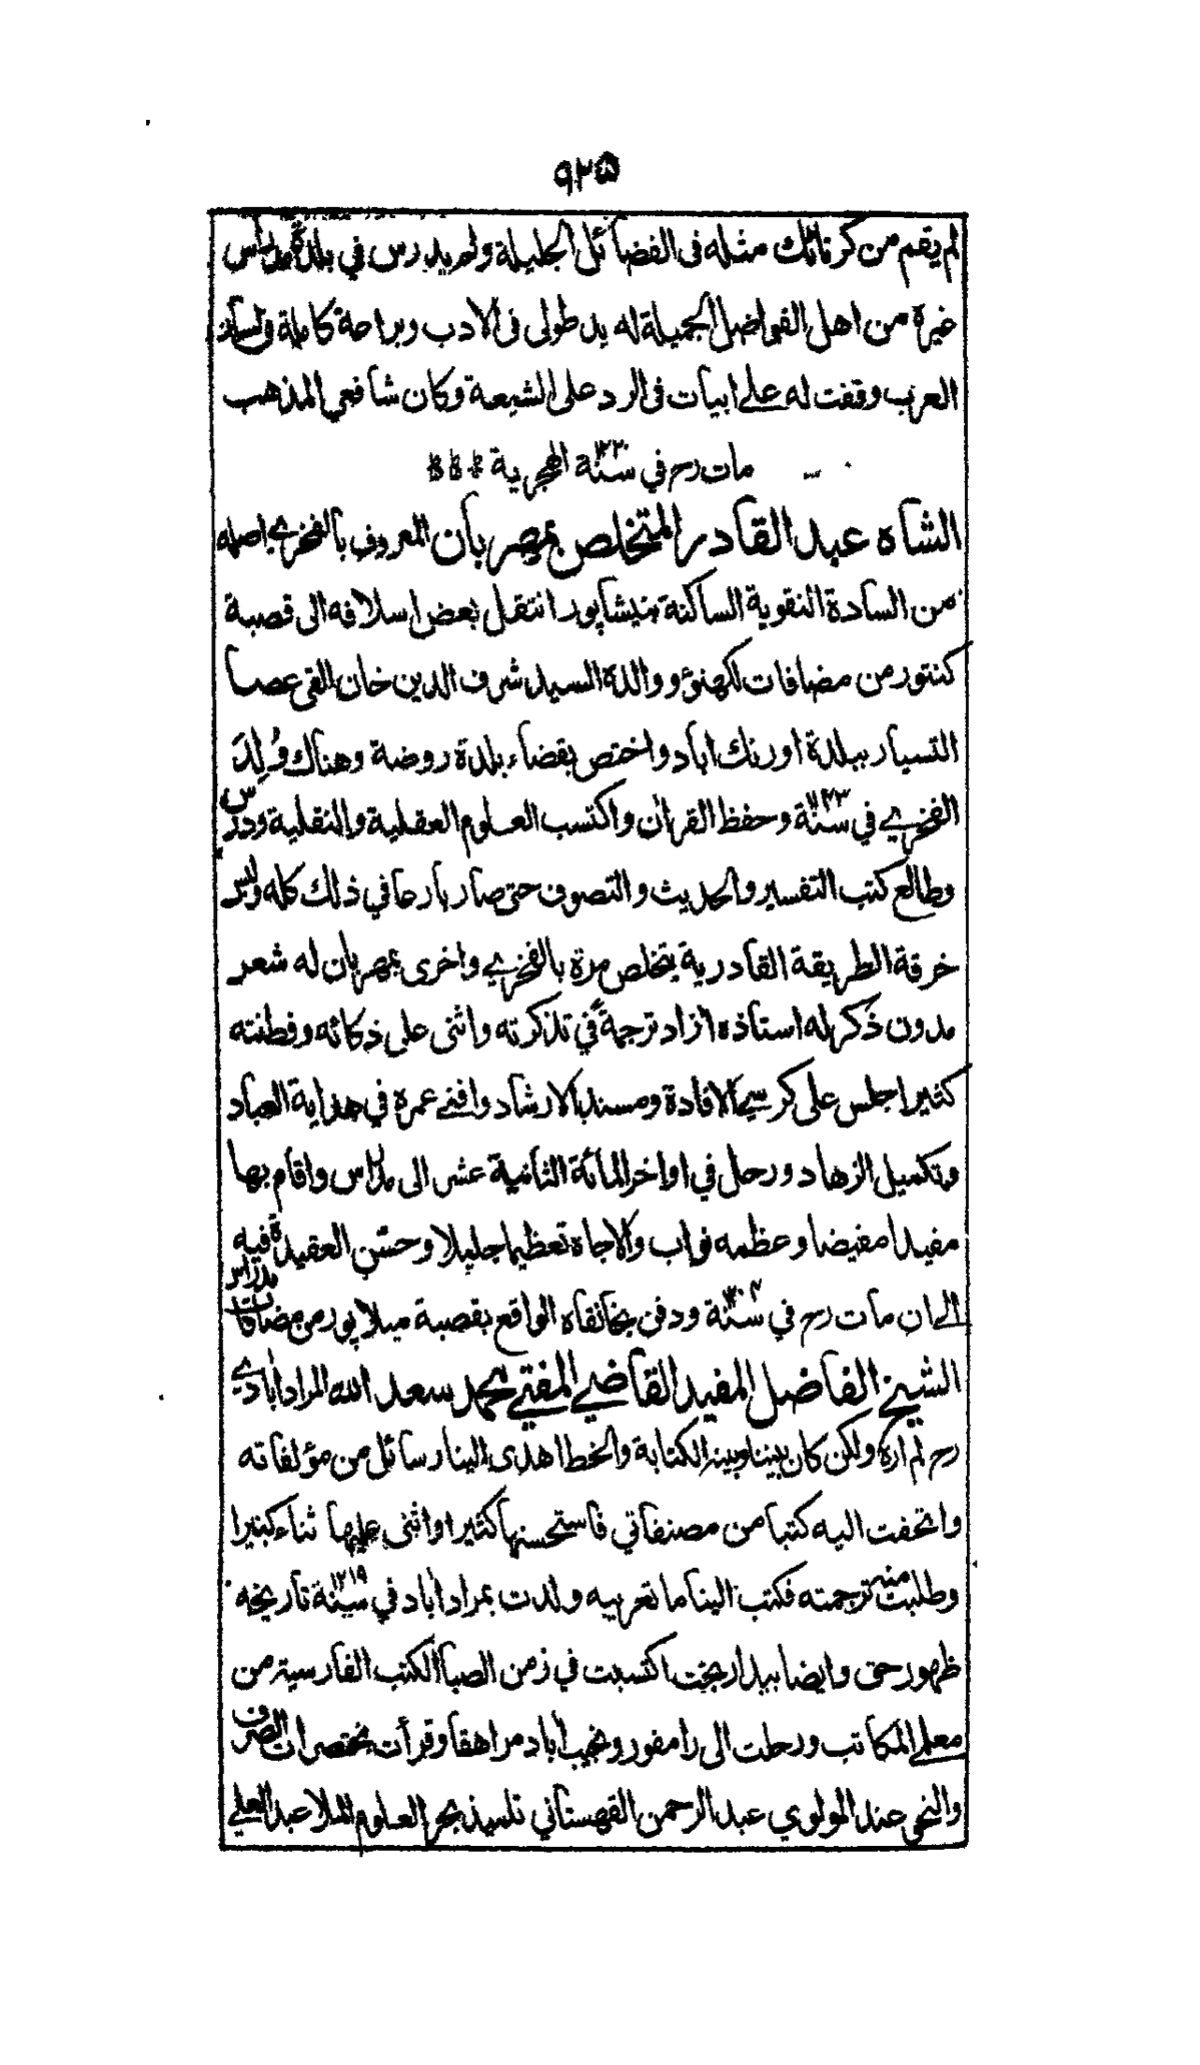 ٩٢٥
لم يقم من كرناٹك مثله فى الفضائل الجليلة ولم يدرس في بلدة مدراس
غيره من اهل الفواضل الجميلة له يد طولى فى الادب وبراعة كاملة فى لسان
العرب وقفت له على ابيات فى الرد على الشيعة وكان شافعي المذهب
مات رح في سنة الهجرية
الشاه عبد القادر المتخلص بمهربان المعروف بالفخري اصله
من السادة النقوية الساكنة بنيشاپور انتقل بعض اسلافه الى قصبة
كنتور من مضافات لكهنؤ ووالده السيد شرف الدين خان القى عصا
التسيار ببلدة اورنك اباد واختص بقضاء بلدة روضة وهناك وُلِدَ
الفخري في سنة وحفظ القرآن واكتسب العلوم العقلية والنقلية ودرس
وطالع كتب التفسير والحديث والتصوف حتى صار بارعا في ذلك كله ولبس
خرقة الطريقة القادرية يتخلص مرة بالفخري واخرى بمهربان له شعر
مدون ذكر له استاذه آزاد ترجمةً في تذكرته واثنى على ذكائه وفطنته
كثيرا جلس على كرسي الافادة ومسند الارشاد وافنى عمره في هداية العباد
وتكميل الزهاد ورحل في اواخر المائة الثانية عشر الى مدراس واقام بها
مفيدا مفيضا وعظمه نواب والاجاه تعظيما جليلا وحسّن العقيدة فيه
الى ان مات رح في سنة ودفن بخانقاه الواقع بقصبة ميلاپور من مضافات مدراس
الشيخ الفاضل المفيد القاضي المفتي محمد سعد الله المرادآبادي
رح لم اره ولكن كان بيننا وبينه الكتابة والخط اهدى الينا رسائل من مؤلفاته
واتحفت اليه كتبا من مصنفاتي فاستحسنها كثيرا واثنى عليها ثناء كبيرا
وطلبت منه ترجمته فكتب الينا ما تعريبه ولدت بمرادآباد في سنة ١٢١٩ تاريخه
ظهور حق وايضا بيدار بخت اكتسبت في زمن الصبا الكتب الفارسية من
معلمي المكاتب ورحلت الى رامفور ونجيب آباد مراهقا وقرأت مختصرات الصرف
والنحو عند المولوي عبد الرحمن القهستاني تلميذ بحر العلوم الملا عبد العلي